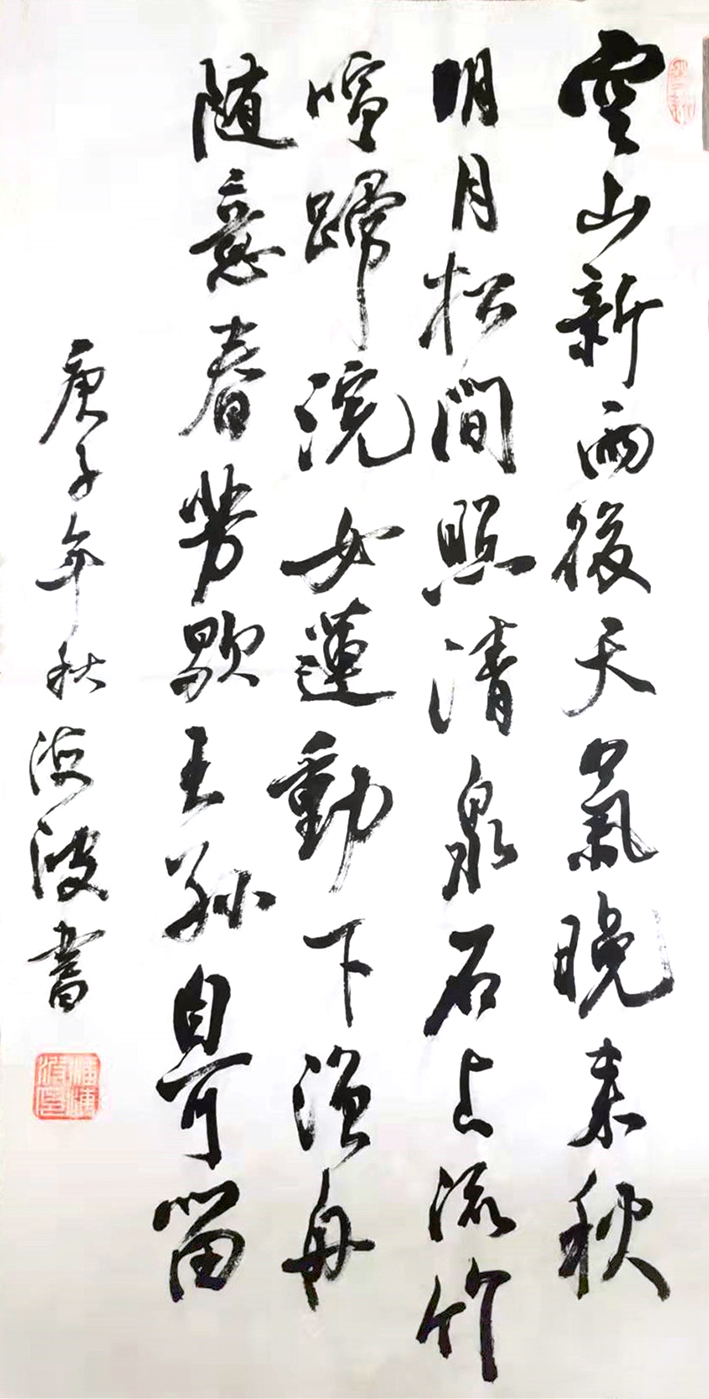 空山新雨後天氣晚来秋
明月松間照清泉石上流竹
喧歸浣女蓮動下漁舟
随意春芳歇王孫自可留
庚子年秋波書